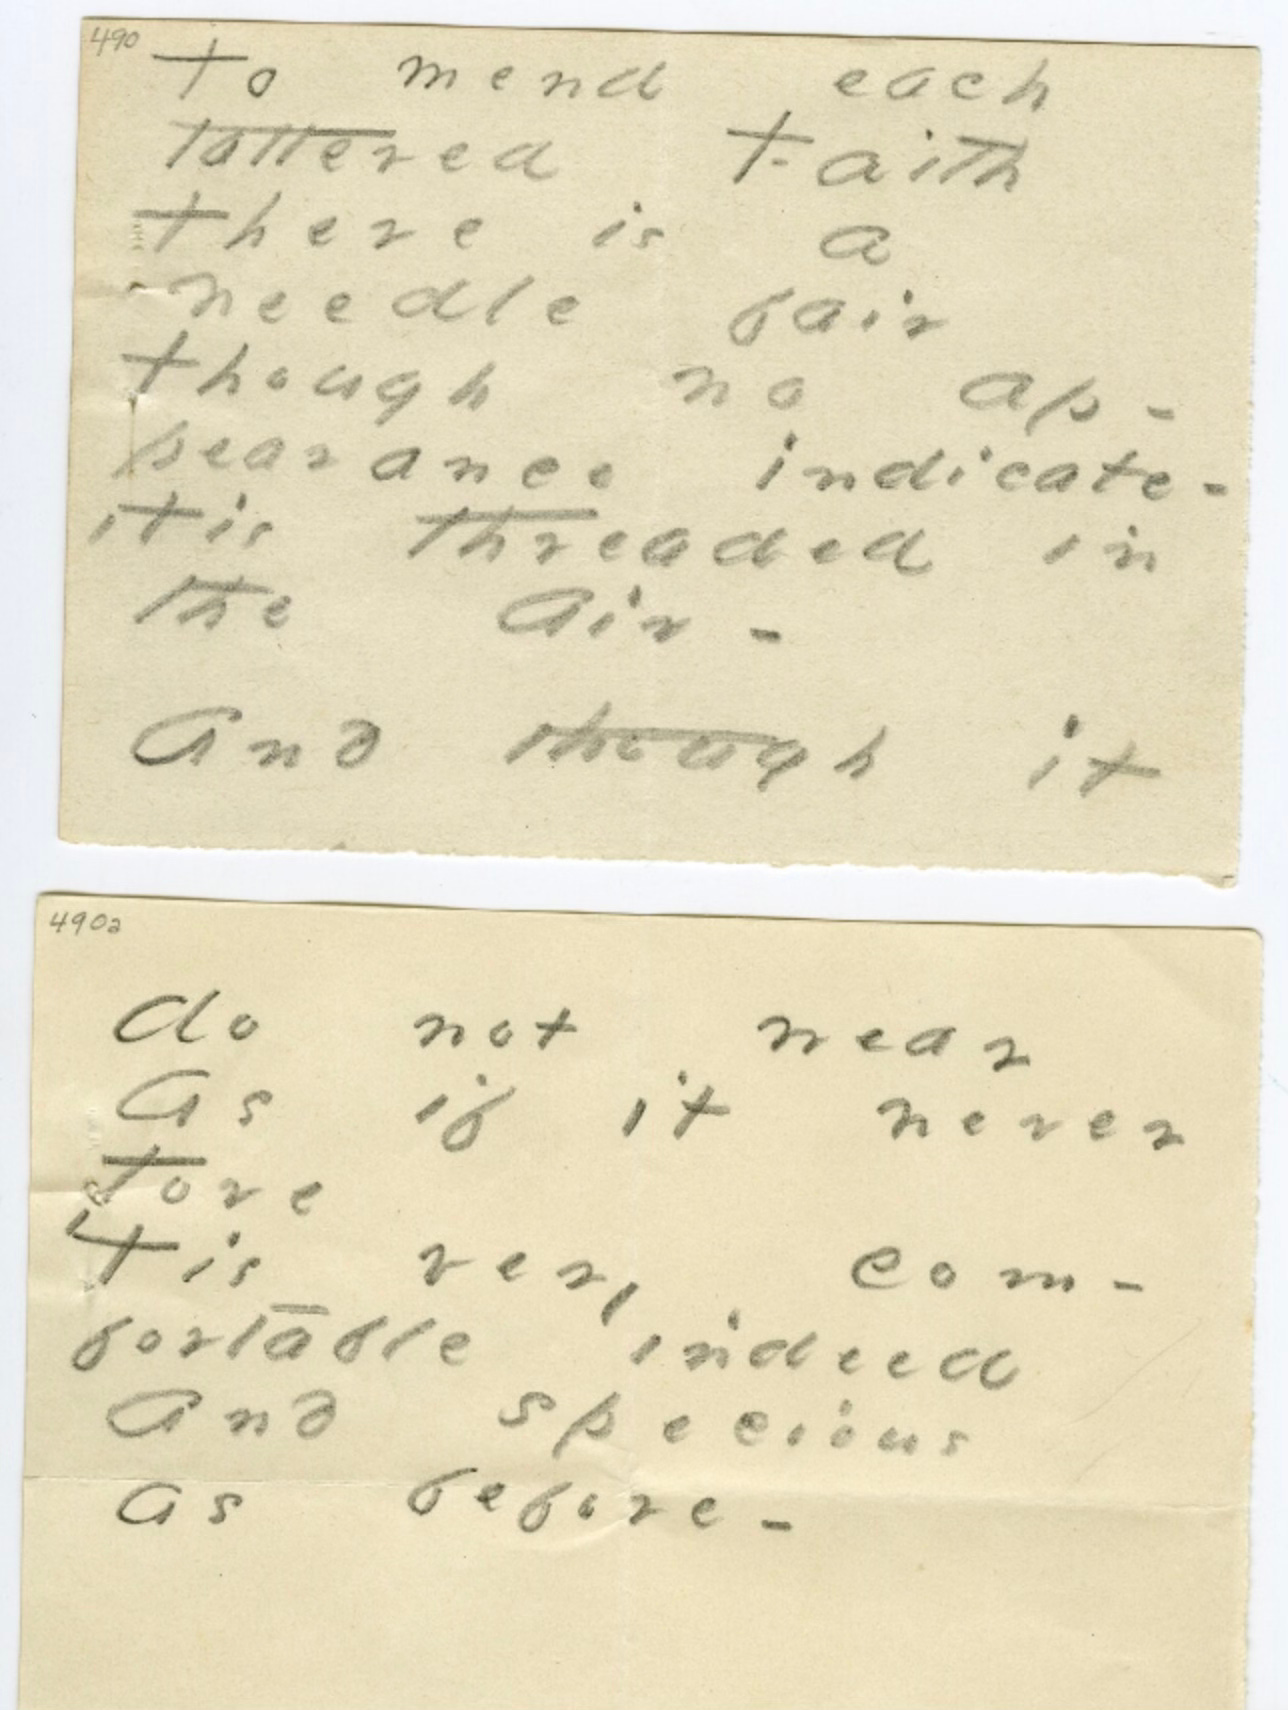 490
To mend each
tattered Faith
there is a
needle fair
though no ap-
pearance indicate -
it is threaded in
the Air -
And though it
490a
do not wear
As if it never
Tore
'Tis very com-
fortable indeed
And spacious
as before -